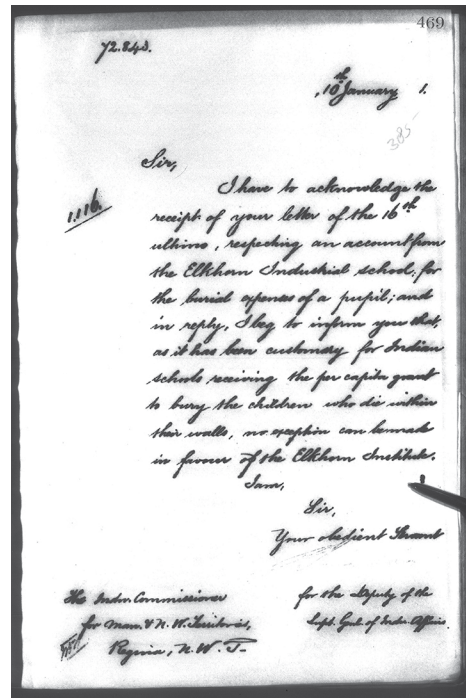 469
72.843.
10th January 1.
385
Sir,
1.116.
I have to acknowledge the
receipt of your letter of the 16th
ultimo, respecting an account from
the Elkhorn Industrial school, for
the burial expenses of a pupil; and
in reply, I beg to inform you that,
as it has been customary for Indian
schools receiving the per capita grant
to bury the children who die within
their walls, no exception can be made
in favour of the Elkhorn Institute.
I am,
Sir,
Your obedient Servant
for the Deputy of the
Supt. Genl. of Indn. Affairs.
The Indn. Commissioner
for Man. & N. W. Territories,
Regina, N. W. T.